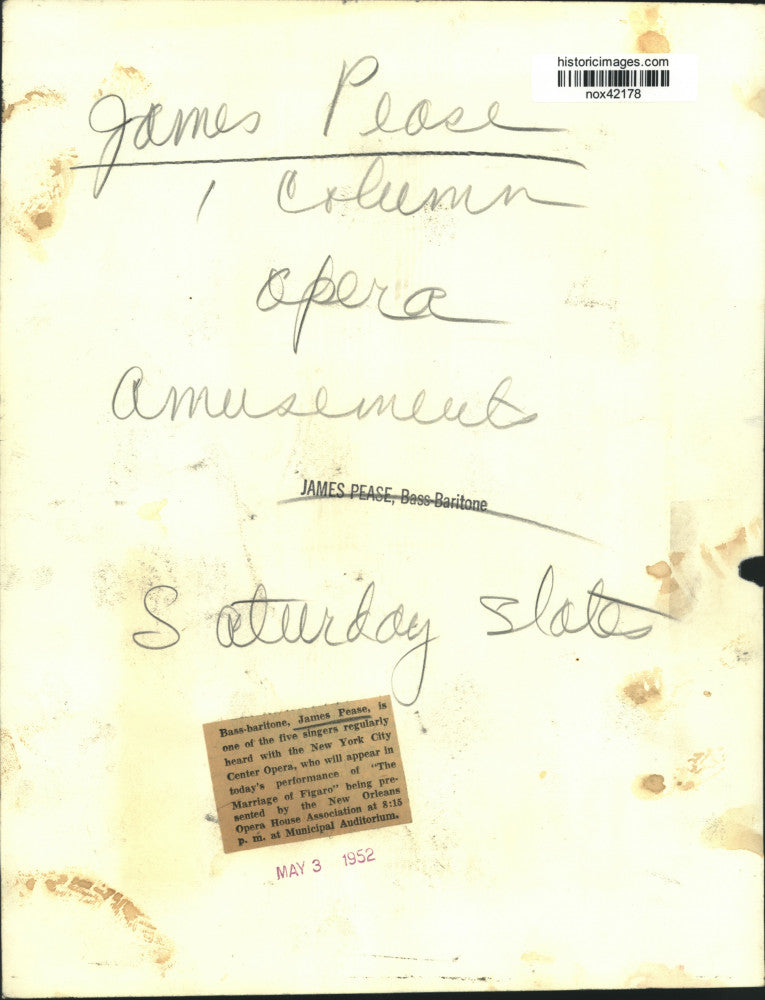 historicimages.com
nox42178
James Pease
1 Column
Opera
Amusements
JAMES PEASE, Bass-Baritone
Saturday Slates
Bass-baritone, James Pease, is
one of the five singers regularly
heard with the New York City
Center Opera, who will appear in
today's performance of "The
Marriage of Figaro" being pre-
sented by the New Orleans
Opera House Association at 8:15
p. m. at Municipal Auditorium.
MAY 3 1952